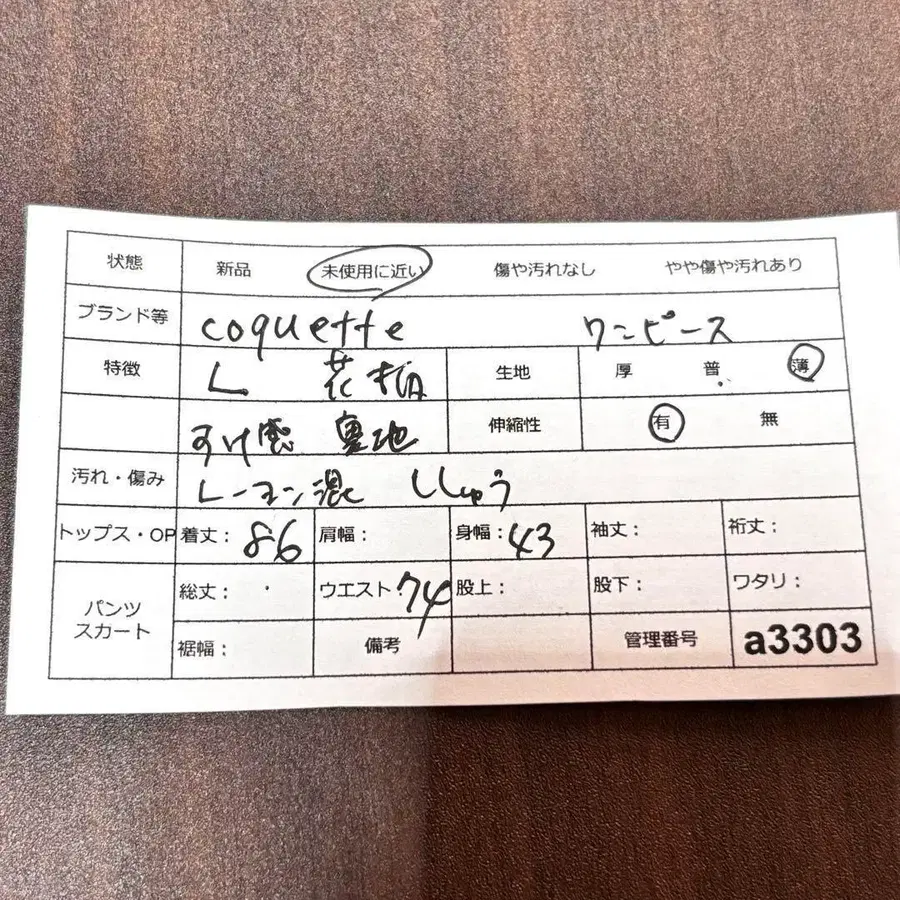 状態 新品 未使用に近い 傷や汚れなし やや傷や汚れあり
ブランド等 coquette ワンピース
特徴 L 花柄 生地 厚 普 薄
すけ感 裏地 伸縮性 有 無
汚れ・傷み レーヨン混 ししゅう
トップス・OP 着丈: 86 肩幅: 身幅: 43 袖丈: 裄丈:
パンツ スカート 総丈: ウエスト: 74 股上: 股下: ワタリ:
裾幅: 備考 管理番号 a3303